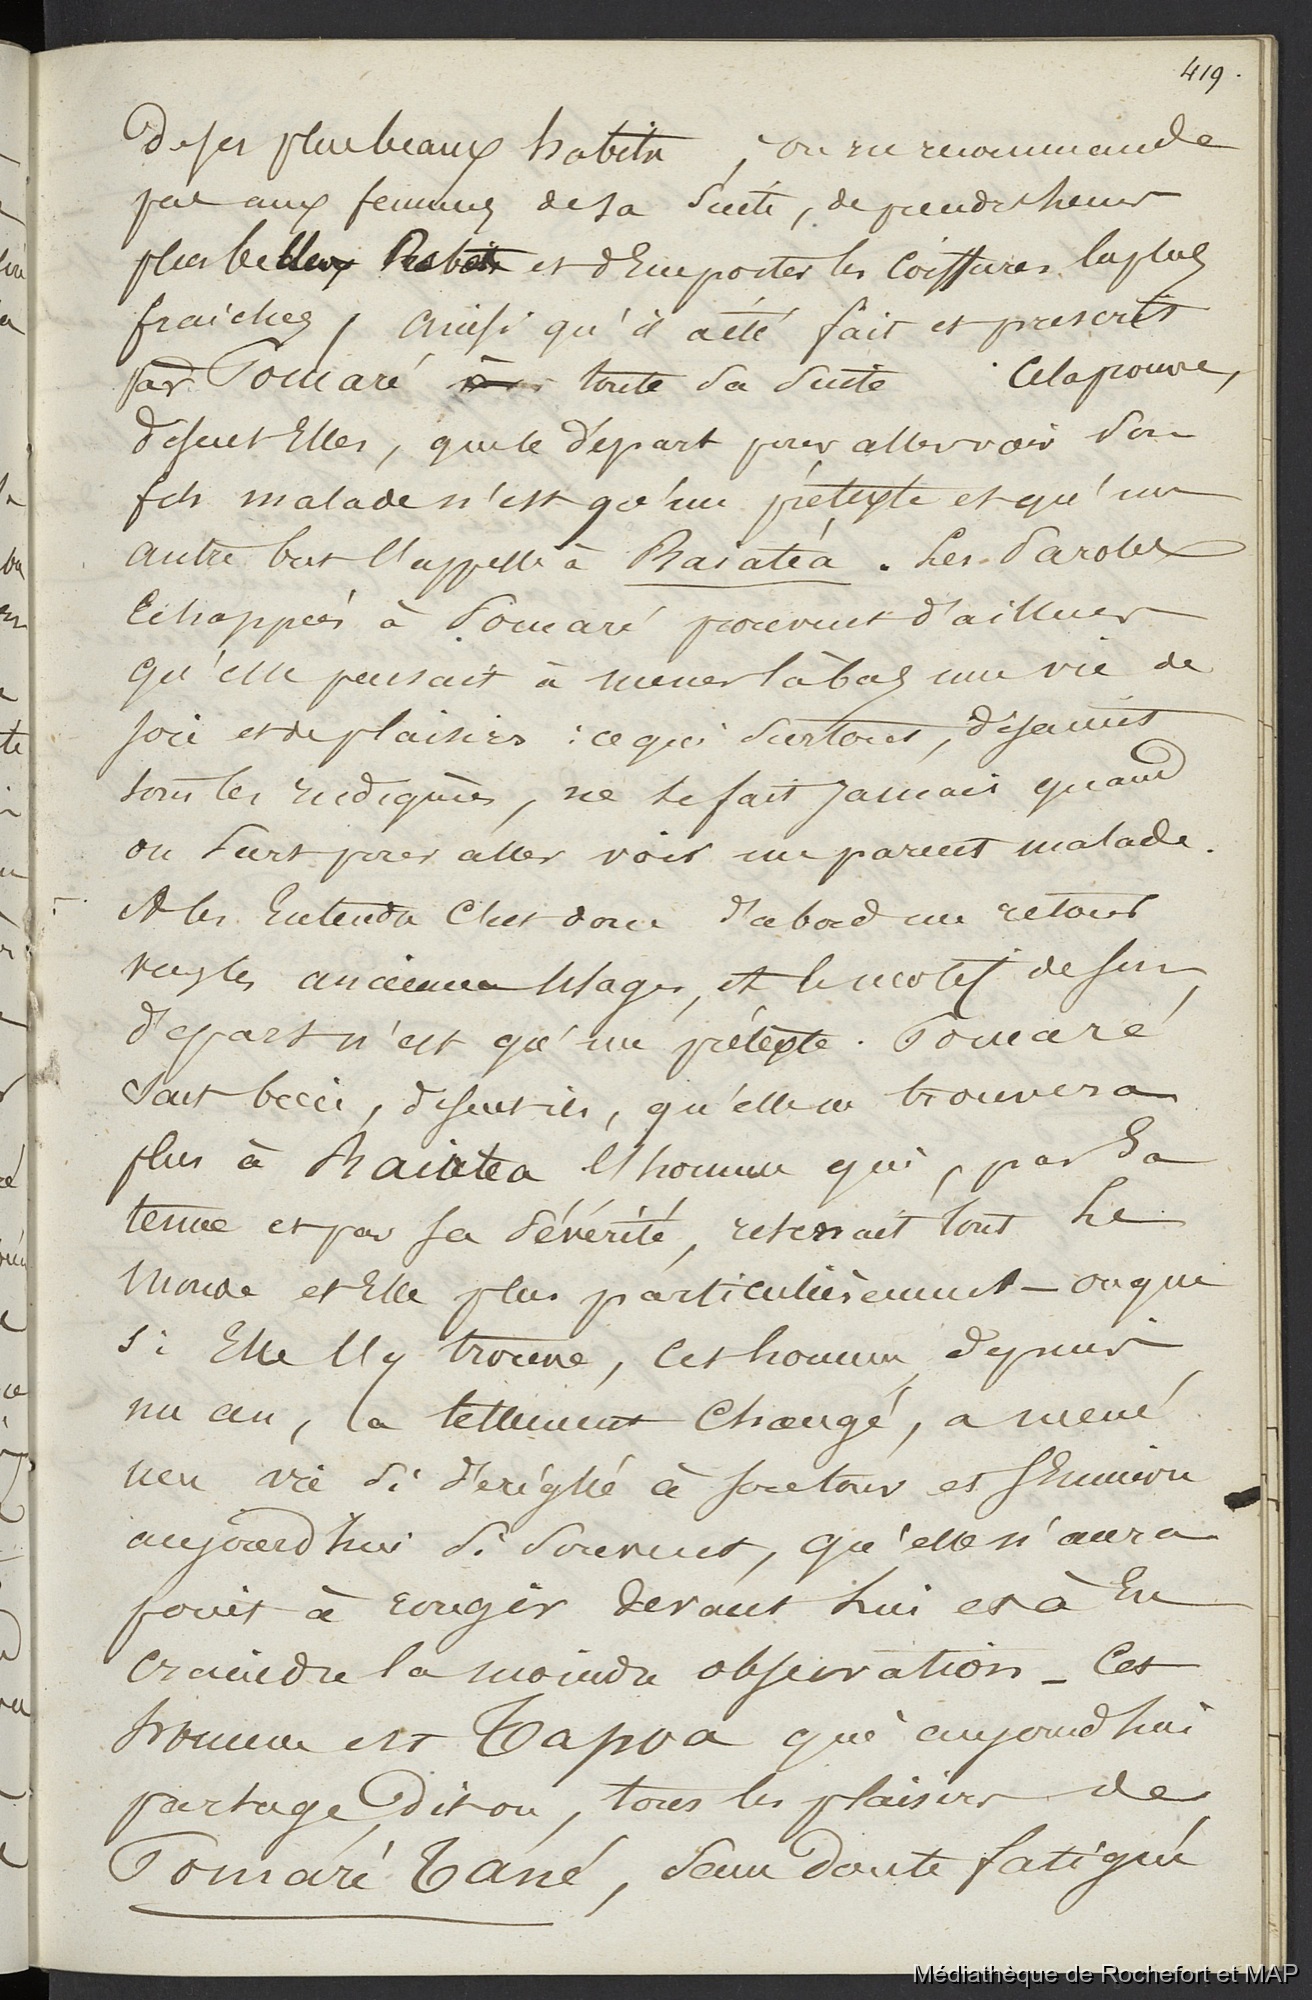 419.
de ses plus beaux habits, on ne recommande
pas aux femmes de sa suite, de prendre leurs
plus belles Robes et d'Emporter les Coiffures les plus
fraiches, ainsi qu'il a été fait et prescrit
par Pomaré à toute sa suite. Cela prouve,
disent Elles, que le départ pour aller voir son
fils malade n'est qu'un prétexte et qu'un
autre but l'appelle à Raiatéa. Les Paroles
Echappées à Pomaré prouvent d'ailleurs
qu'elle pensait à mener là bas une vie de
joie et de plaisirs : ce qui surtout, disaient
tous les indigènes, ne se fait jamais quand
on part pour aller voir un parent malade.
A les Entendre C'est donc d'abord un retour
vers les anciens Usages, et le motif de son
départ n'est qu'un prétexte. Pomaré
sait bien, disent ils, qu'elle ne trouvera
plus à Raiatea l'homme qui, par sa
tenue et par sa sévérité, retenait tout le
Monde et Elle plus particulièrement – ou que
si Elle l'y trouve, cet homme, depuis
un an, a tellement Changé, a mené
une vie si déréglé à son tour et s'Ennivre
aujourd'hui si souvent, qu'elle n'aura
point à rougir devant lui et à En
craindre la moindre observation – Cet
homme est Tapoa qui aujourd'hui
partage, dit on, tous les plaisirs de
Pomaré Tané, sans Doute fatigué
Médiathèque de Rochefort et MAP